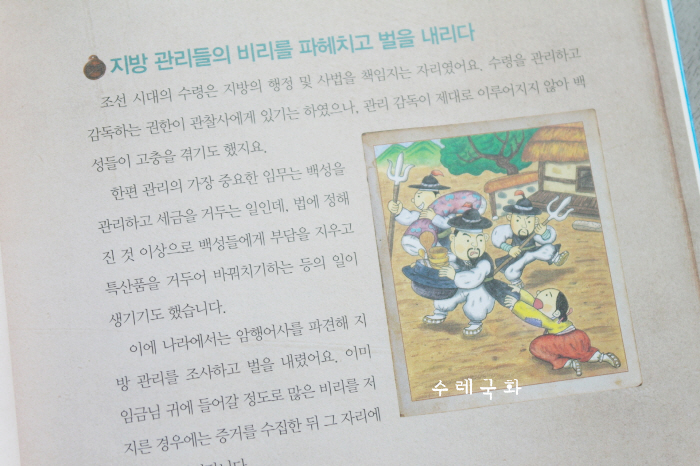 지방 관리들의 비리를 파헤치고 벌을 내리다
조선 시대의 수령은 지방의 행정 및 사법을 책임지는 자리였어요. 수령을 관리하고
감독하는 권한이 관찰사에게 있기는 하였으나, 관리 감독이 제대로 이루어지지 않아 백
성들이 고충을 겪기도 했지요.
한편 관리의 가장 중요한 임무는 백성을
관리하고 세금을 거두는 일인데, 법에 정해
진 것 이상으로 백성들에게 부담을 지우고
특산품을 거두어 바꿔치기하는 등의 일이
생기기도 했습니다.
이에 나라에서는 암행어사를 파견해 지
방 관리를 조사하고 벌을 내렸어요. 이미
임금님 귀에 들어갈 정도로 많은 비리를 저
지른 경우에는 증거를 수집한 뒤 그 자리에
수레국화